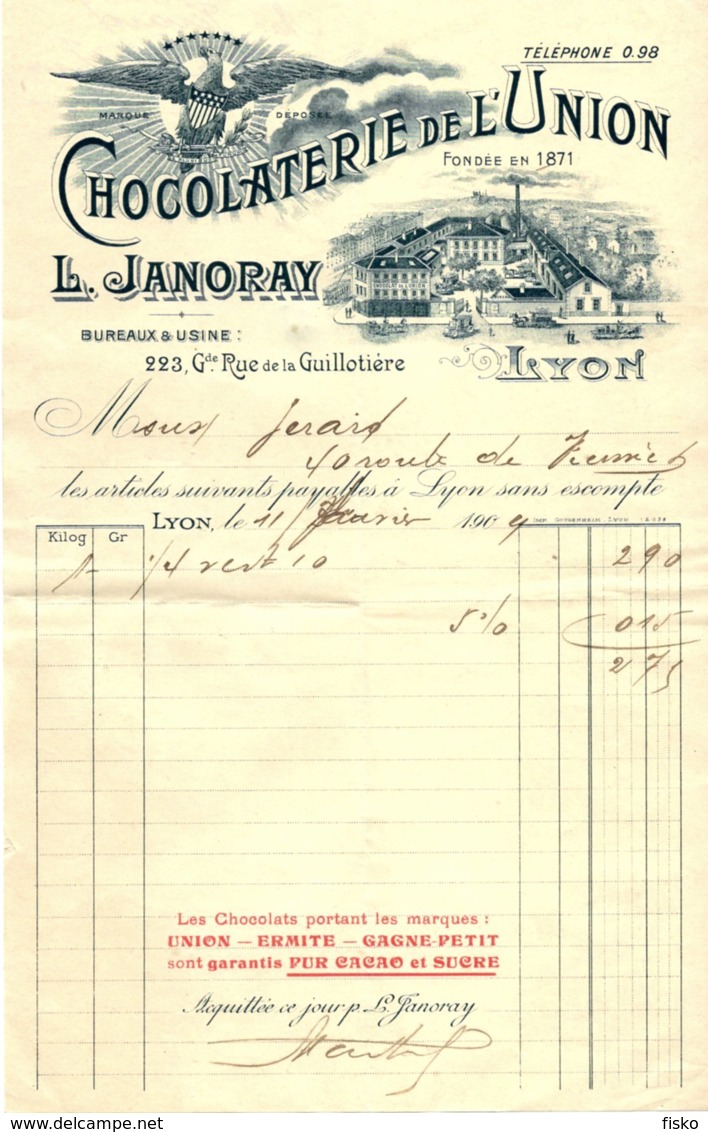 TÉLÉPHONE 0.98
MARQUE DÉPOSÉE
CHOCOLATERIE DE L'UNION
FONDÉE EN 1871
L. JANORAY
BUREAUX & USINE :
223, Gde. Rue de la Guillotière
LYON
40 route de
les articles suivants payables à Lyon sans escompte
LYON, le 11 190
Kilog Gr
1 - 1/4 vert 10 2 90
5% 0 15
2 75
Les Chocolats portant les marques :
UNION — ERMITE — GAGNE-PETIT
sont garantis PUR CACAO et SUCRE
Acquittée ce jour p. L. Janoray
delcampe.net
fisko